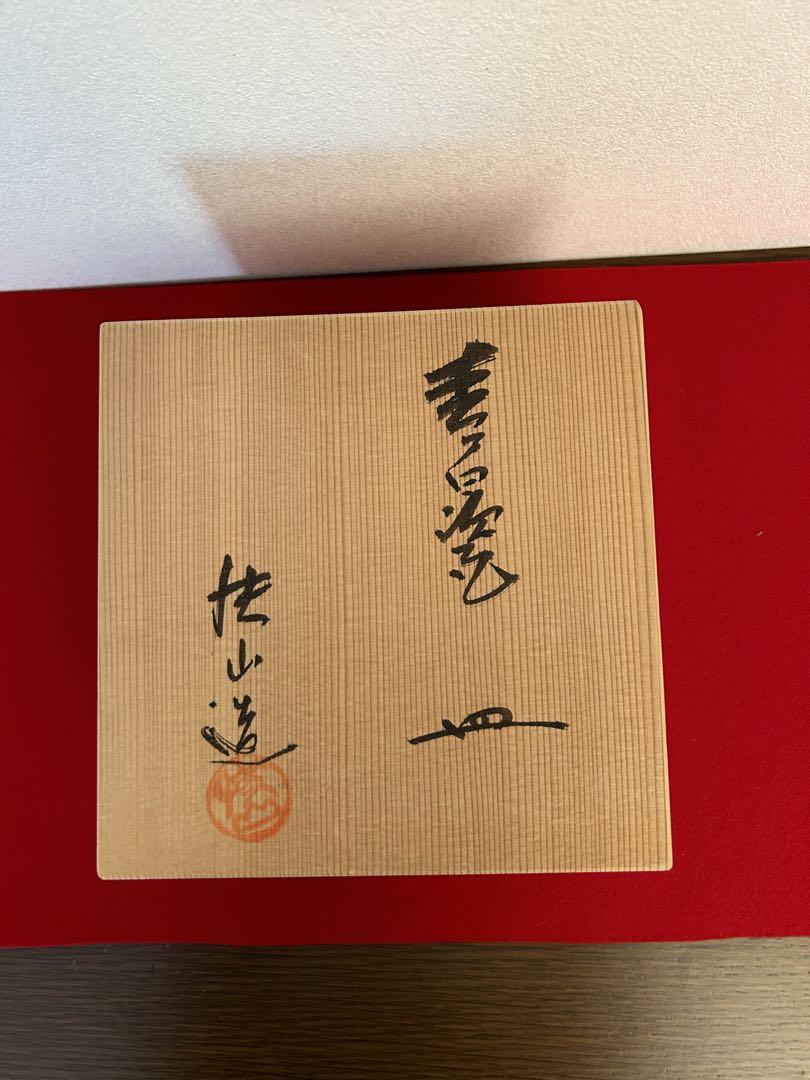 青白瓷 皿
山造